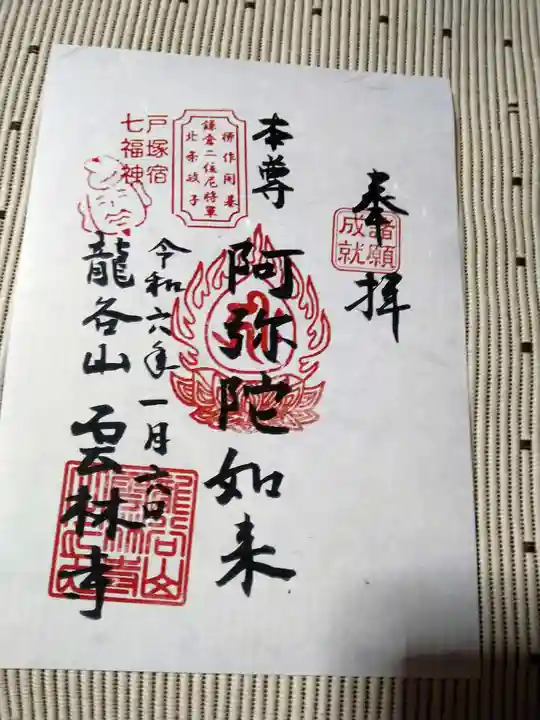 奉拝
諸願
成就
本尊
阿弥陀如来
柳作開基
鎌倉二位尼将軍
北条政子
令和六年一月六日
戸塚宿
七福神
龍谷山 雲林寺